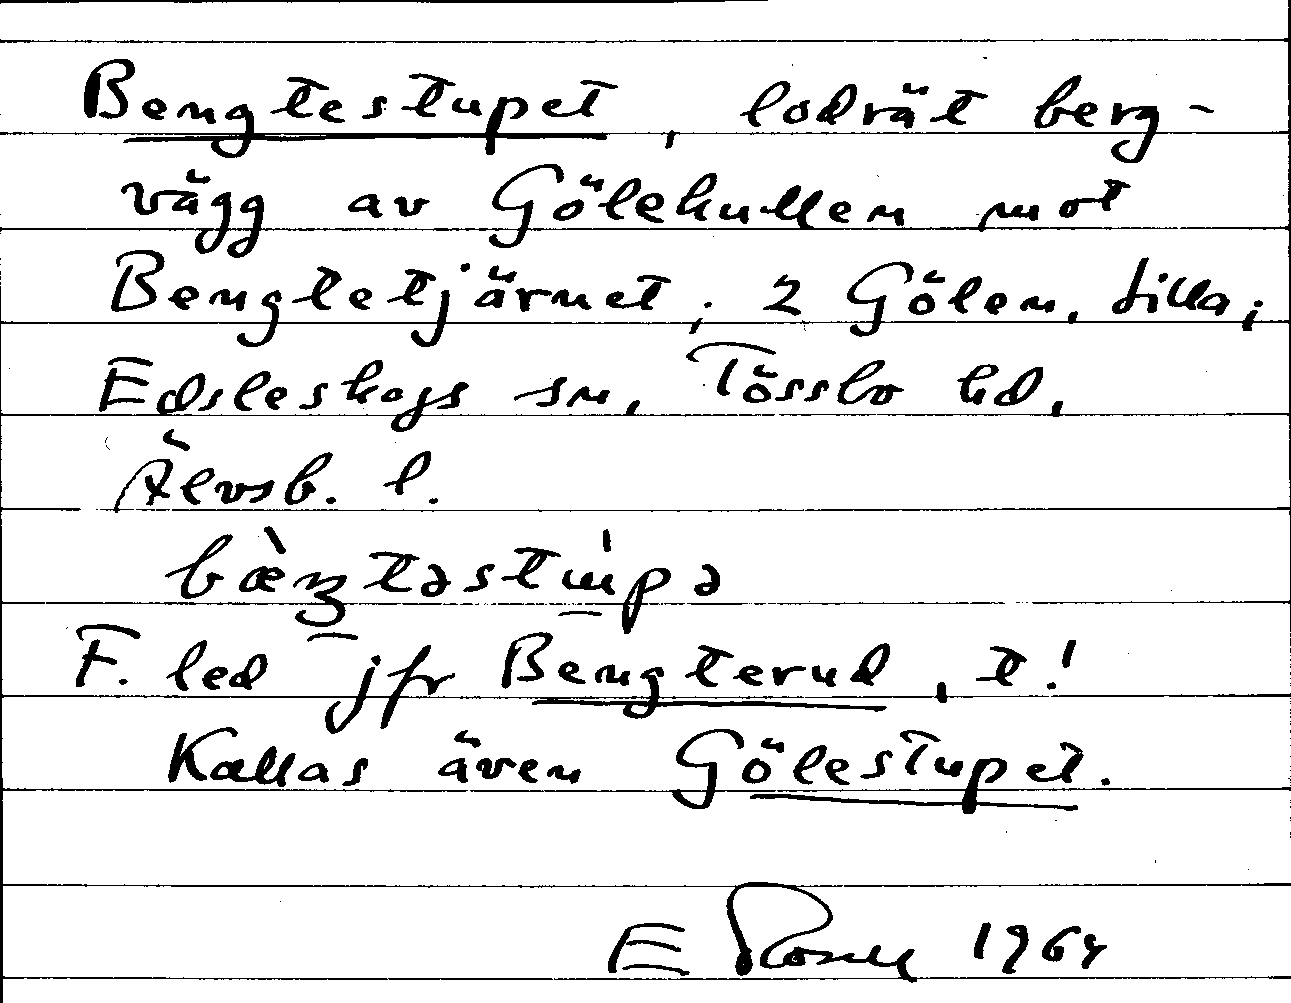 Bengtestupet, lodrät berg-
vägg av Gölekullen mot
Bengtetjärnet; 2 Gölen, Lilla;
Edsleskogs sn, Tössbo hd,
Älvsb. l.
F. led jfr Bengterud, t!
Kallas även Gölestupet.
E 1964